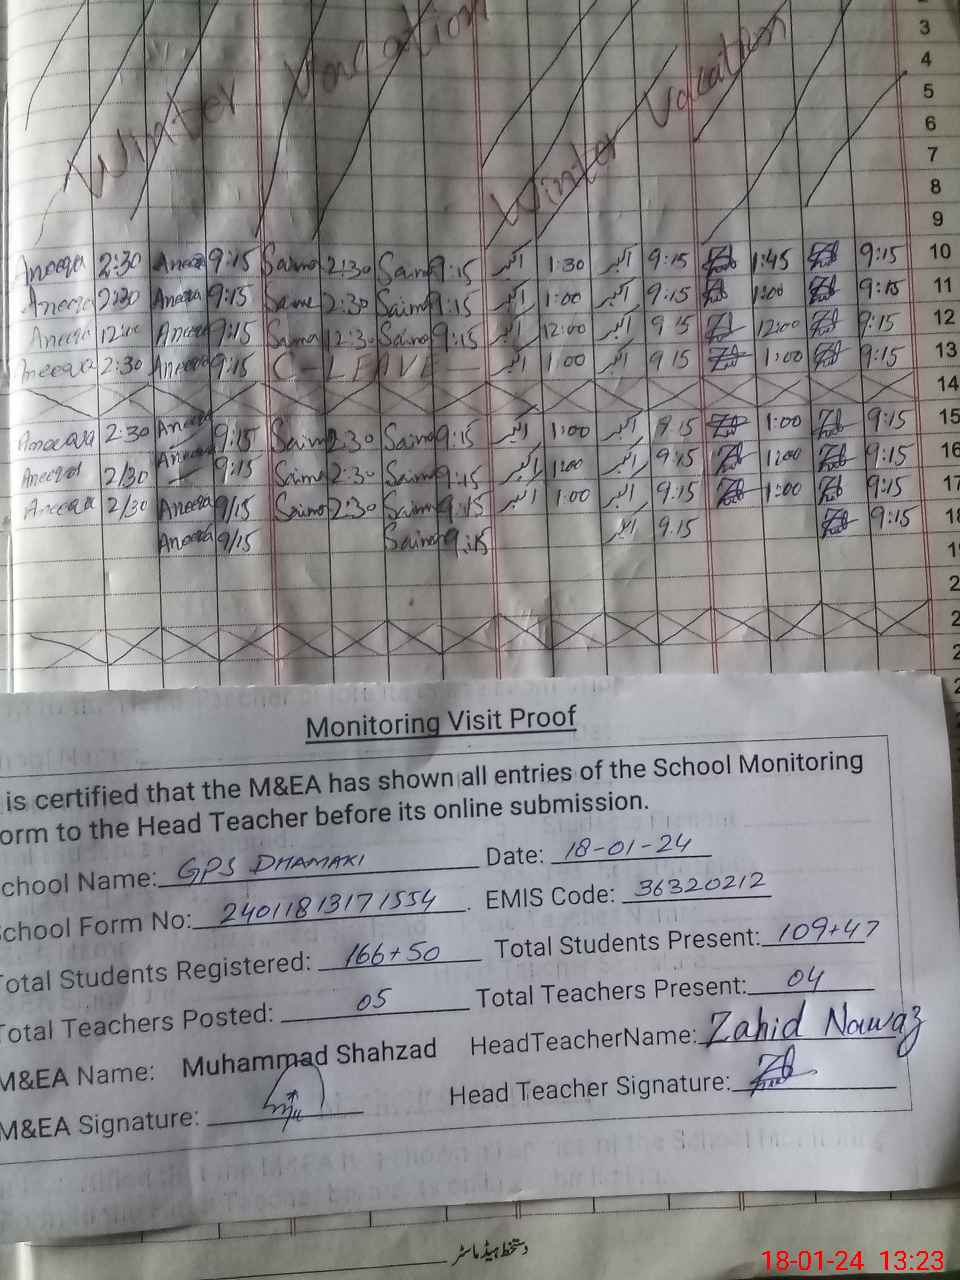 3
4
Winter Vacation Winter Vacation 5
6
7
8
9
Aneeqa 2:30 Aneeqa 9:15 Saima 2:30 Saima 9:15 اکبر 1:30 اکبر 9:15 1:45 9:15 10
Aneeqa 2:30 Aneeqa 9:15 Saima 2:30 Saima 9:15 اکبر 1:00 اکبر 9:15 1:00 9:15 11
Aneeqa 12:00 Aneeqa 9:15 Saima 12:30 Saima 9:15 اکبر 12:00 اکبر 9 15 12:00 9:15 12
Aneeqa 2:30 Aneeqa 9:15 C-LEAVE اکبر 1:00 اکبر 9 15 1:00 9:15 13
14
Aneeqa 2:30 Aneeqa 9:15 Saima 2:30 Saima 9:15 اکبر 1:00 اکبر 9:15 1:00 9:15 15
Aneeqa 2/30 Aneeqa 9:15 Saima 2:30 Saima 9:15 اکبر 1:00 اکبر 9:15 1:00 9:15 16
Aneeqa 2/30 Aneeqa 9/15 Saima 2:30 Saima 9:15 اکبر 1:00 اکبر 9:15 1:00 9:15 17
Aneeqa 9/15 Saima 9:15 اکبر 9.15 9:15 18
Monitoring Visit Proof
is certified that the M&EA has shown all entries of the School Monitoring
orm to the Head Teacher before its online submission.
chool Name: GPS DHAMAKI Date: 18-01-24
chool Form No: 2401181317 1554 EMIS Code: 36320212
Total Students Registered: 166+50 Total Students Present: 109+47
Total Teachers Posted: 05 Total Teachers Present: 04
M&EA Name: Muhammad Shahzad HeadTeacherName: Zahid Nawaz
M&EA Signature: Head Teacher Signature:
دستخط ہیڈ ماسٹر
18-01-24 13:23